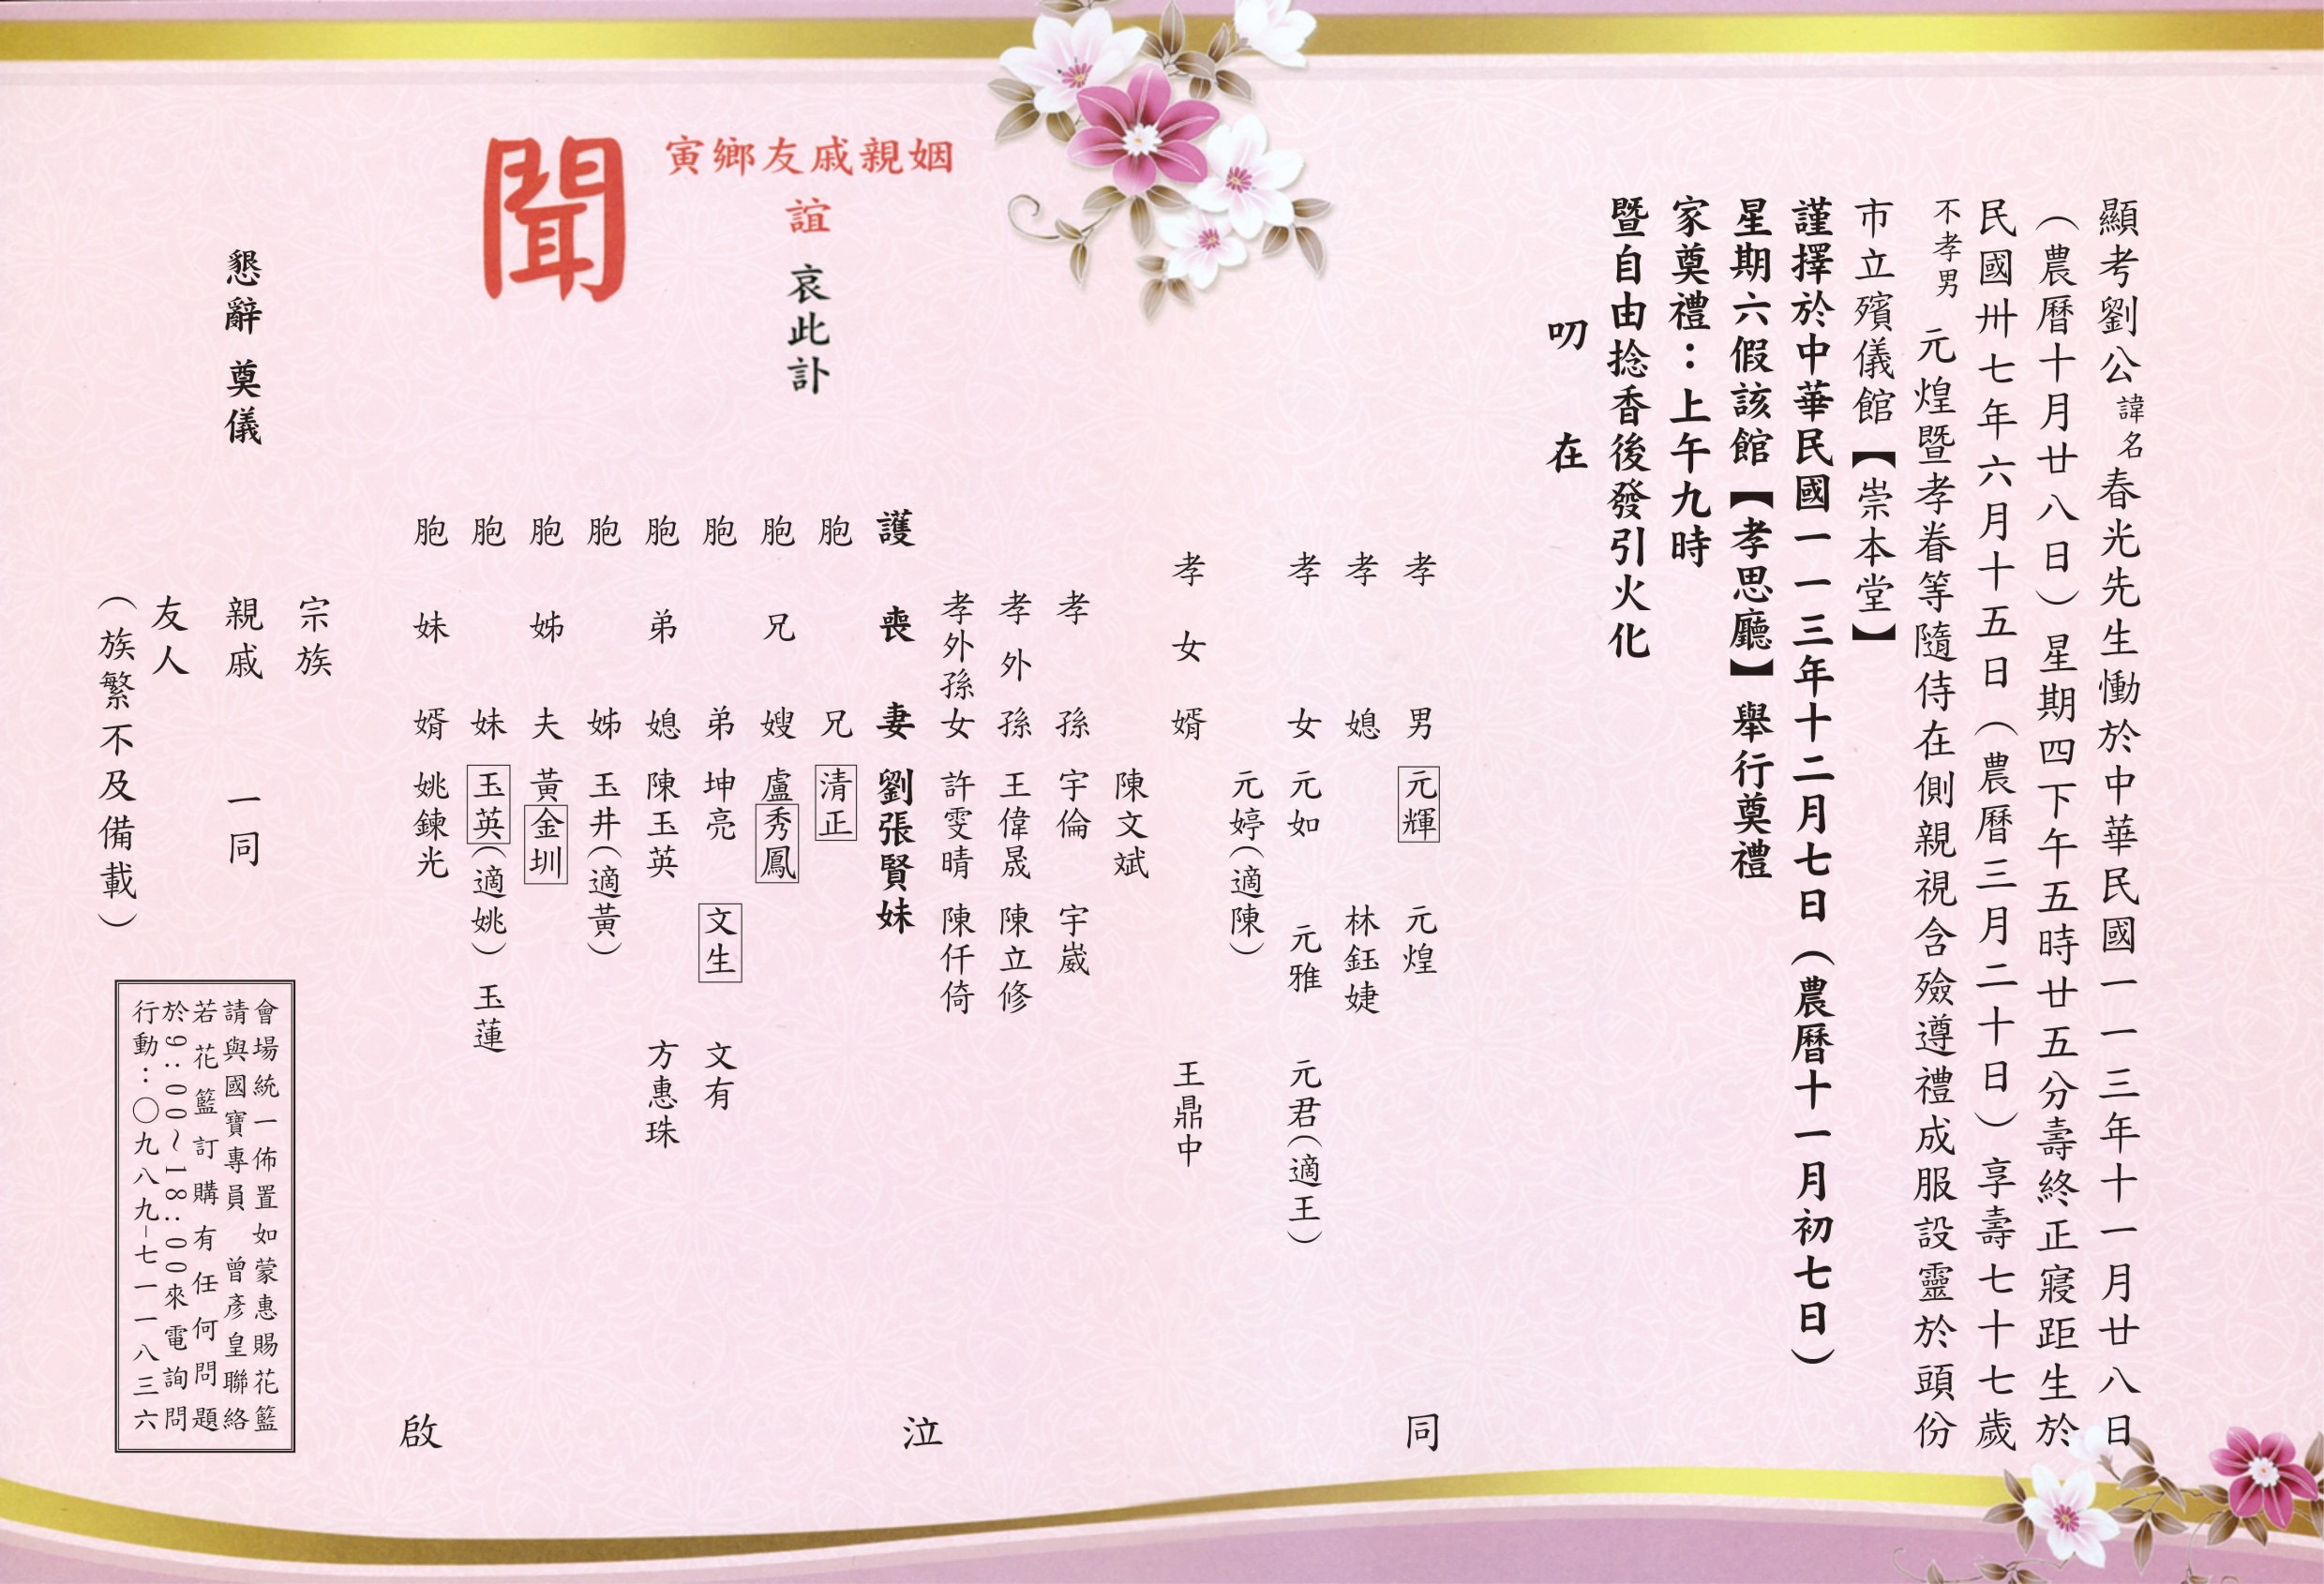 顯考劉公諱名春光先生慟於中華民國一一三年十一月廿八日
（農曆十月廿八日）星期四下午五時廿五分壽終正寢距生於
民國卅七年六月十五日（農曆三月二十日）享壽七十七歲
不孝男 元煌暨孝眷等隨侍在側親視含殮遵禮成服設靈於頭份
市立殯儀館【崇本堂】
謹擇於中華民國一一三年十二月七日（農曆十一月初七日）
星期六假該館【孝思廳】舉行奠禮
家奠禮：上午九時
暨自由捻香後發引火化
叨 在
姻親戚友鄉寅
誼 哀此訃
聞
孝男 元輝 元煌
孝媳 林鈺婕
孝女 元如 元雅 元君（適王）
元婷（適陳）
孝女婿 王鼎中
陳文斌
孝孫 宇倫 宇崴
孝外孫 王偉晟 陳立修
孝外孫女 許雯晴 陳仟倚
護喪妻 劉張賢妹
胞兄 清正
胞兄嫂 盧秀鳳
胞弟 坤亮 文生 文有
胞弟媳 陳玉英 方惠珠
胞姊 玉井（適黃）
胞姊夫 黃金圳
胞妹 玉英（適姚） 玉蓮
胞妹婿 姚鍊光
同 泣 啟
宗族
親戚 一同
友人
（族繁不及備載）
懇辭 奠儀
會場統一佈置如蒙惠賜花籃
請與國寶專員 曾彥皇聯絡
若花籃訂購有任何問題
於9:00~18:00來電詢問
行動：〇九八九-七一一八三六